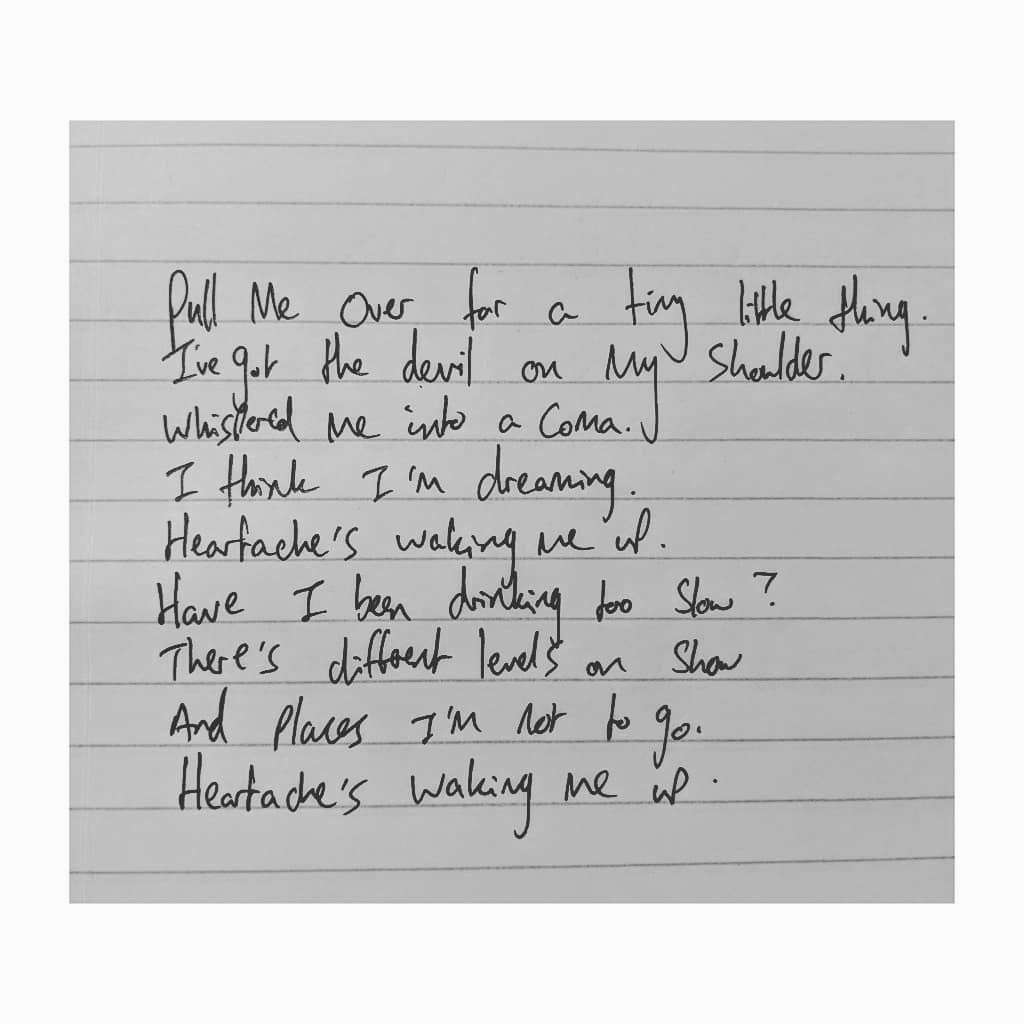 Pull Me Over for a tiny little thing.
I've got the devil on My Shoulder.
Whispered Me into a Coma.
I think I'm dreaming.
Heartache's waking me up.
Have I been drinking too Slow?
There's different levels on Show
And Places I'm not to go.
Heartache's waking me up.